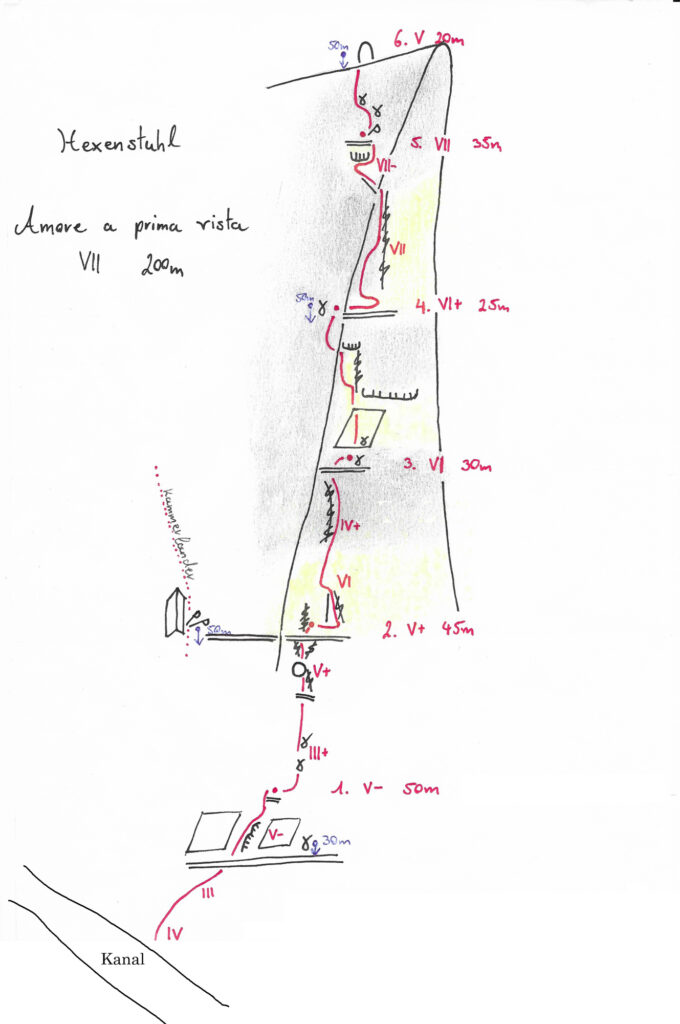 6. V 20m
50m
Hexenstuhl
5. VII 35m
VII-
Amore a prima vista
VII 200m
VII
50m
4. VI+ 25m
3. VI 30m
IV+
Kammerlander
VI
50m
2. V+ 45m
V+
III+
1. V- 50m
V-
30m
III
IV
Kanal